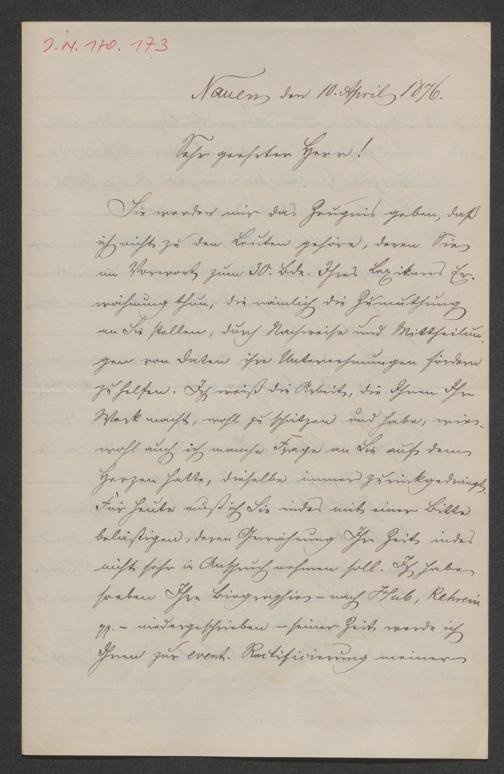 J.N. 170.173
Nauen den 10. April 1876.
Sehr geehrter Herr!
Sie werden mir das Zeugnis geben, daß
ich nicht zu den Leuten gehöre, deren Sie
im Vorwort zum 30. Bde. Ihres Lexikons Er-
wähnung thun, die nämlich die Zumuthung
an Sie stellen, durch Nachweise und Mittheilun-
gen von Daten ihre Unternehmungen fördern
zu helfen. Ich weiß die Arbeit, die Ihnen Ihr
Werk macht, wohl zu schätzen und habe, wie-
wohl auch ich manche Frage an Sie auf dem
Herzen hatte, dieselbe immer zurückgedrängt.
Für heute muß ich Sie indes mit einer Bitte
belästigen, deren Gewährung Ihre Zeit indes
nicht sehr in Anspruch nehmen soll. Ich habe
soeben Ihre Biographie – nach Hub, Kehrein
pp. – niedergeschrieben – seiner Zeit werde ich
Ihnen zur event. Rectificierung meiner